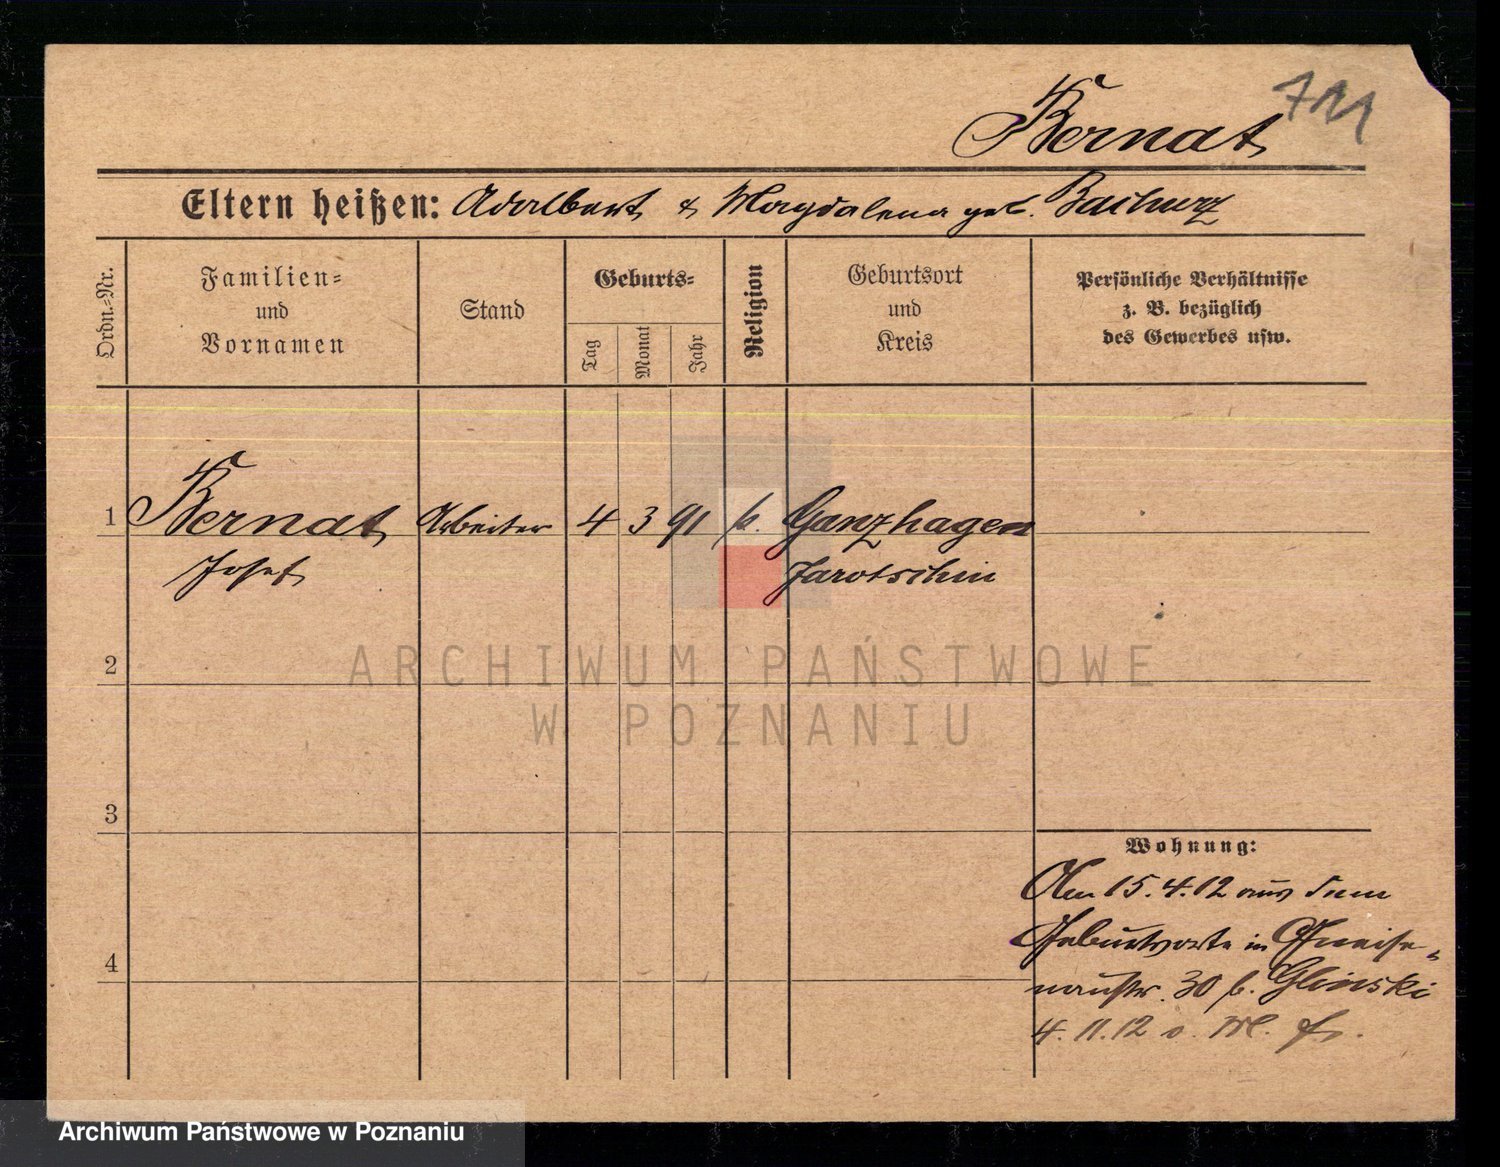 711
Bernat
Eltern heißen: Adalbert & Magdalena geb.
Ordn.-Nr.
Familien-
und
Vornamen
Stand
Geburts-
Tag
Monat
Jahr
Religion
Geburtsort
und
Kreis
Persönliche Verhältnisse
z. B. bezüglich
des Gewerbes usw.
1 Bernat Arbeiter 4 3 91 k. Ganzhagen
Josef Jarotschin
2
3
4
Wohnung:
Am 15.4.12 aus dem
Geburtsorte in Gneise-
naustr. 30 b. Glinski
4.11.12
ARCHIWUM PAŃSTWOWE
W POZNANIU
Archiwum Państwowe w Poznaniu